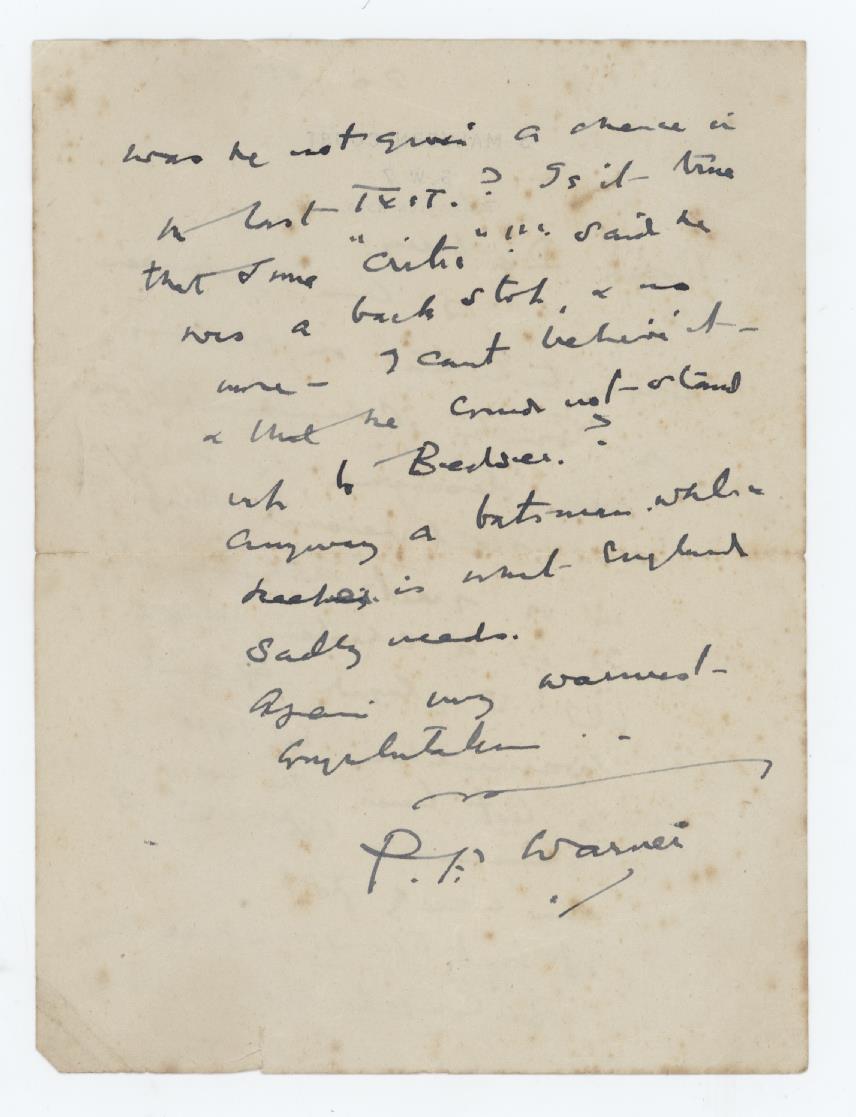 was he not given a chance in
the last TEST.? Is it true
that some "critic" !!! said he
was a back stop, & no
more – I cant believe it –
& that he could not stand
up to Bedser. ?
Anyway a batsman. wicket
keeper is what England
sadly needs.
Again my warmest
Congratulations
P.F. Warner